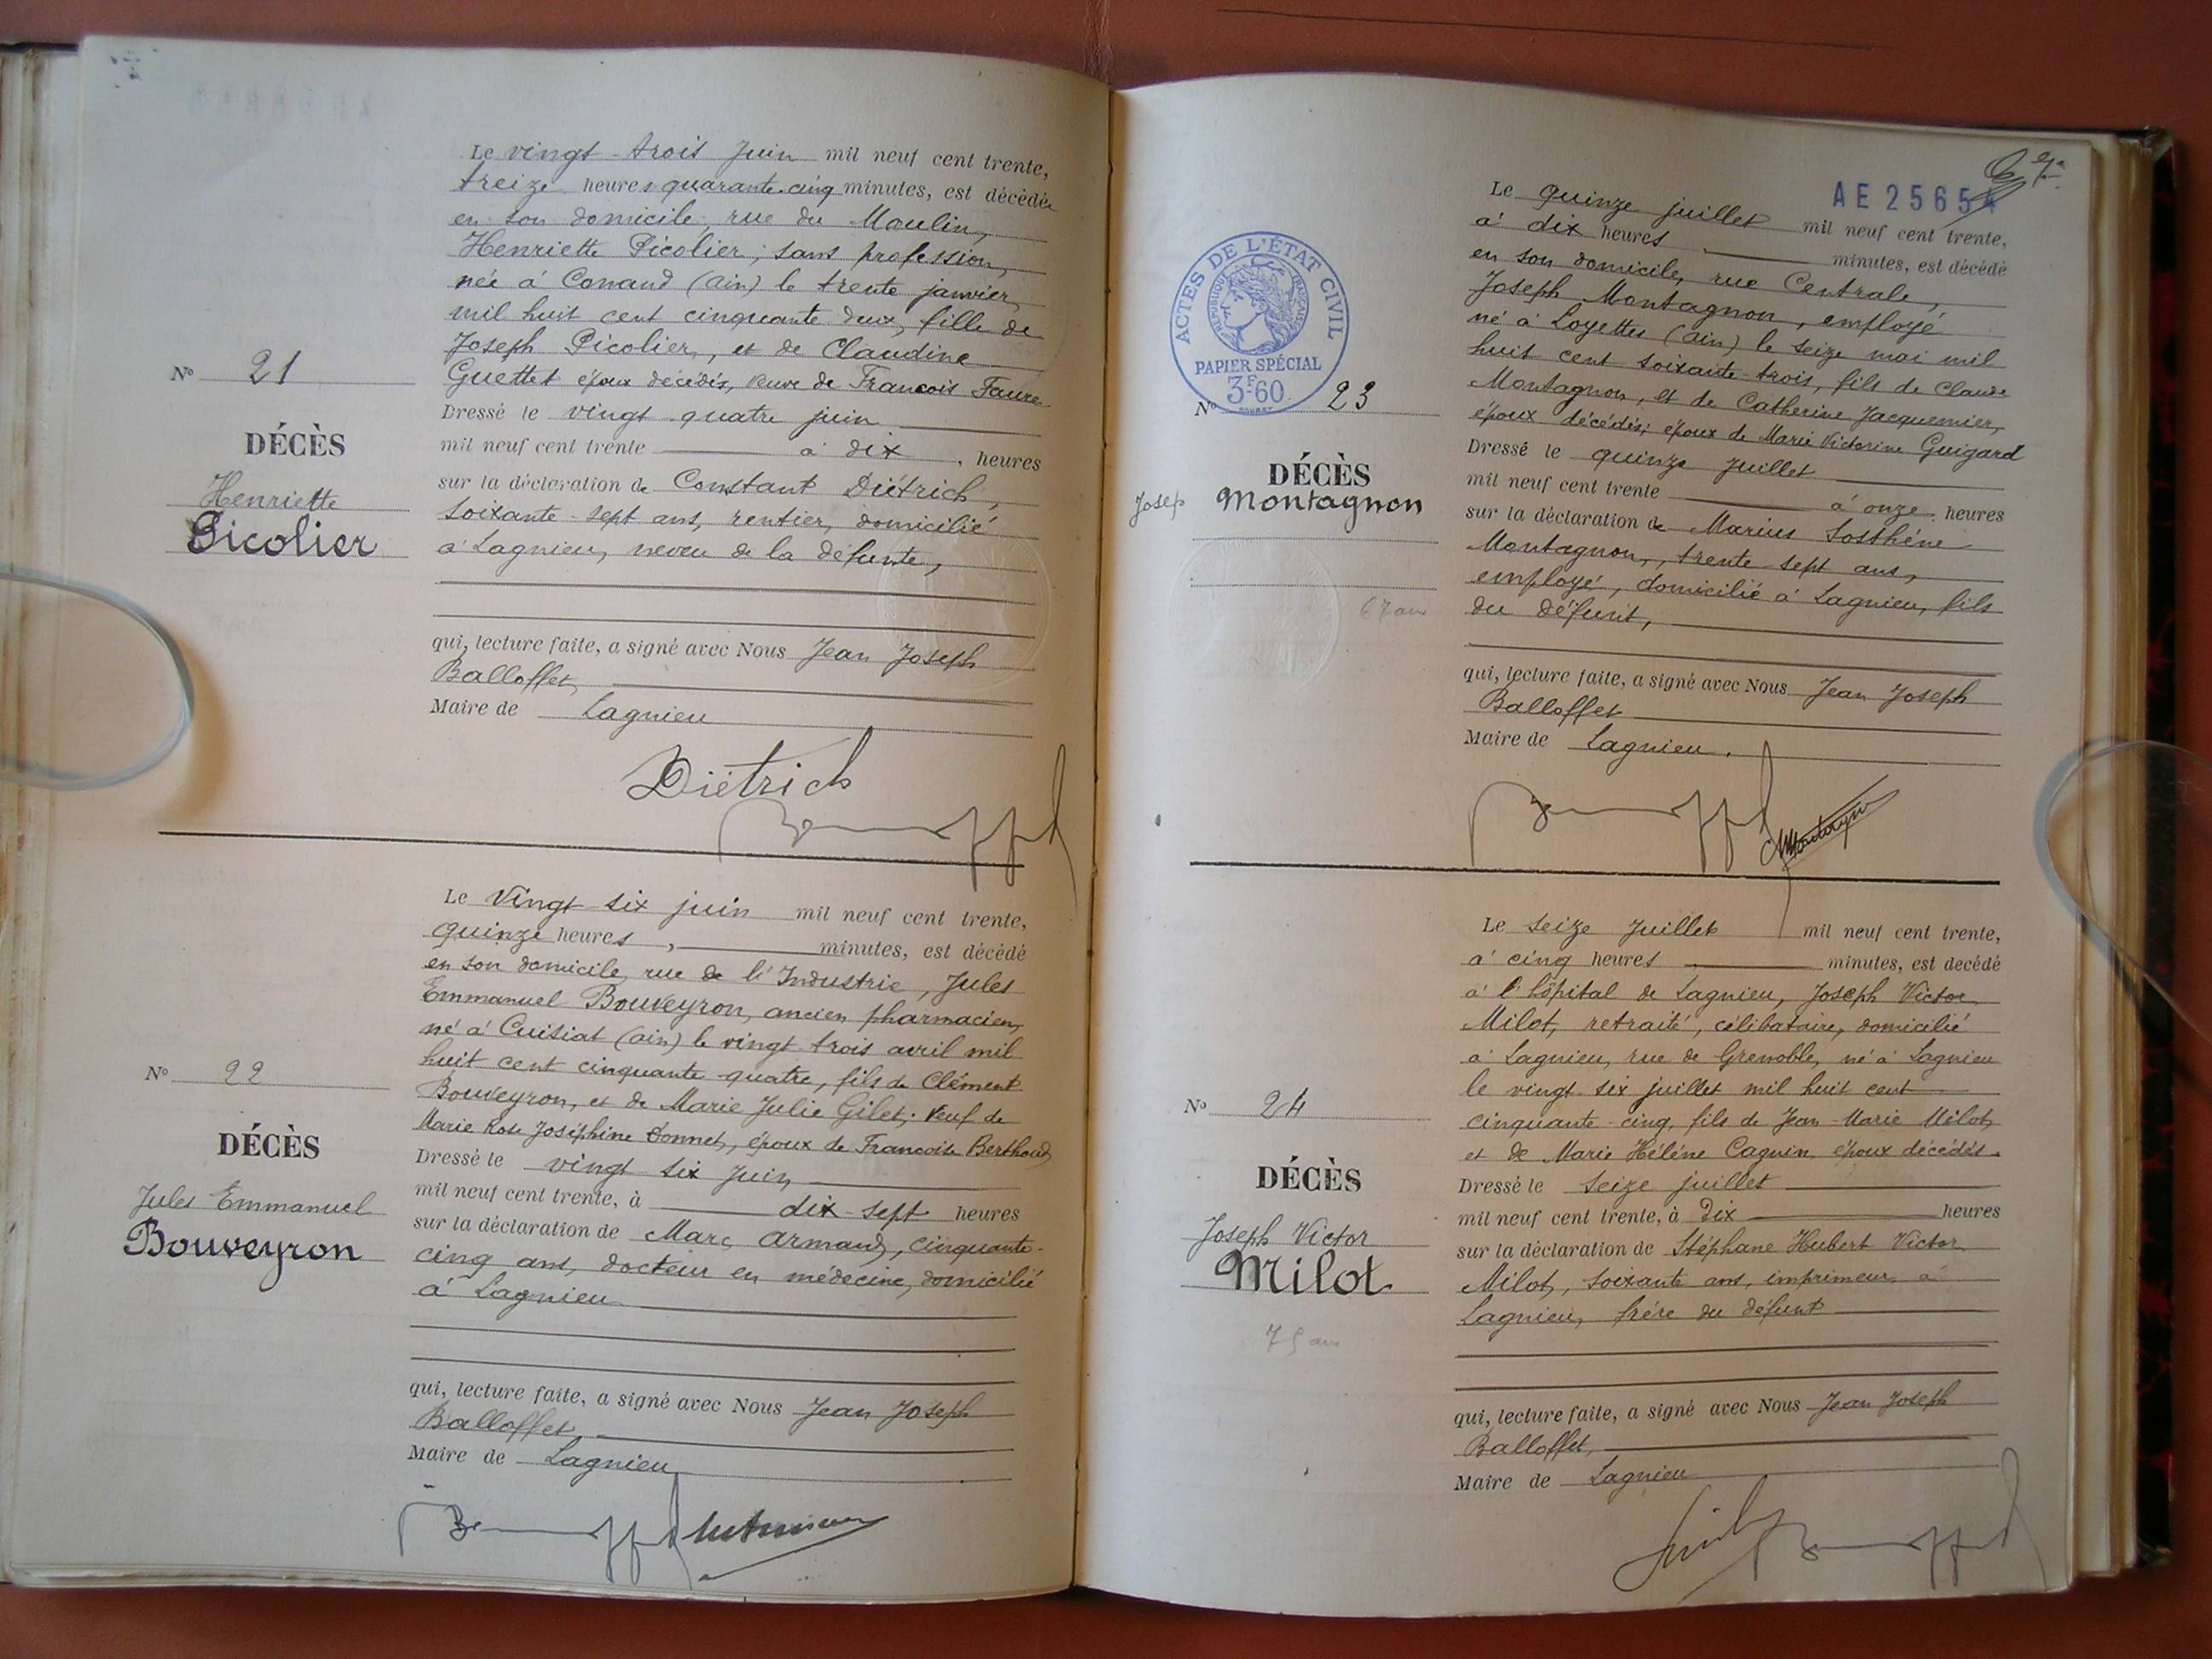 Le vingt-trois Juin mil neuf cent trente,
treize heures quarante-cinq minutes, est décédée
en son domicile, rue du Moulin,
Henriette Picolier, sans profession,
née à Conand (Ain) le trente janvier
mil huit cent cinquante deux, fille de
Joseph Picolier, et de Claudine
Guettet époux décédés, veuve de Francois Faure
Nº 21
DÉCÈS
Henriette
Picolier
Dressé le vingt quatre juin
mil neuf cent trente à dix, heures
sur la déclaration de Constant Diétrich,
soixante-sept ans, rentier, domicilié
à Lagnieu, neveu de la défunte,
qui, lecture faite, a signé avec Nous Jean Joseph
Balloffet,
Maire de Lagnieu
Diétrich
Le Vingt six juin mil neuf cent trente,
quinze heures, minutes, est décédé
en son domicile, rue de l'Industrie, Jules
Emmanuel Bouveyron, ancien pharmacien,
né à Cuisiat (Ain) le vingt trois avril mil
huit cent cinquante quatre, fils de Clément
Bouveyron, et de Marie Julie Gilet; Veuf de
Marie Rose Joséphine Donnet, époux de Francoise Berthoud
Nº 22
DÉCÈS
Jules Emmanuel
Bouveyron
Dressé le vingt six Juin,
mil neuf cent trente, à dix-sept heures
sur la déclaration de Marc Armand, cinquante-
cinq ans, docteur en médecine, domicilié
à Lagnieu
qui, lecture faite, a signé avec Nous Jean Joseph
Balloffet,
Maire de Lagnieu
AE 25654
ACTES DE L'ÉTAT CIVIL
RÉPUBLIQUE FRANÇAISE
PAPIER SPÉCIAL
3F60
Le quinze juillet mil neuf cent trente,
à dix heures minutes, est décédé
en son domicile, rue Centrale,
Joseph Montagnon, employé
né à Loyettes (Ain) le seize mai mil
huit cent soixante-trois, fils de Claude
Montagnon, et de Catherine Jacquemier,
époux décédés; époux de Marie Victorine Guigard
Nº 23
DÉCÈS
Josep Montagnon
67 ans
Dressé le quinze juillet
mil neuf cent trente à onze, heures
sur la déclaration de Marius Sosthène
Montagnon, trente-sept ans,
employé, domicilié à Lagnieu, fils
du défunt,
qui, lecture faite, a signé avec Nous Jean Joseph
Balloffet
Maire de Lagnieu.
Le seize Juillet mil neuf cent trente,
à cinq heures minutes, est decédé
à l'hôpital de Lagnieu, Joseph Victor
Milot, retraité, célibataire, domicilié
à Lagnieu, rue de Grenoble, né à Lagnieu
le vingt six juillet mil huit cent
cinquante-cinq, fils de Jean-Marie Milot,
et de Marie Hélène Cagnin époux décédés.
Nº 24
DÉCÈS
Joseph Victor
Milot
75 ans
Dressé le seize juillet
mil neuf cent trente, à dix heures
sur la déclaration de Stéphane Hubert Victor
Milot, soixante ans, imprimeur à
Lagnieu, frère du défunt
qui, lecture faite, a signé avec Nous Jean Joseph
Balloffet,
Maire de Lagnieu